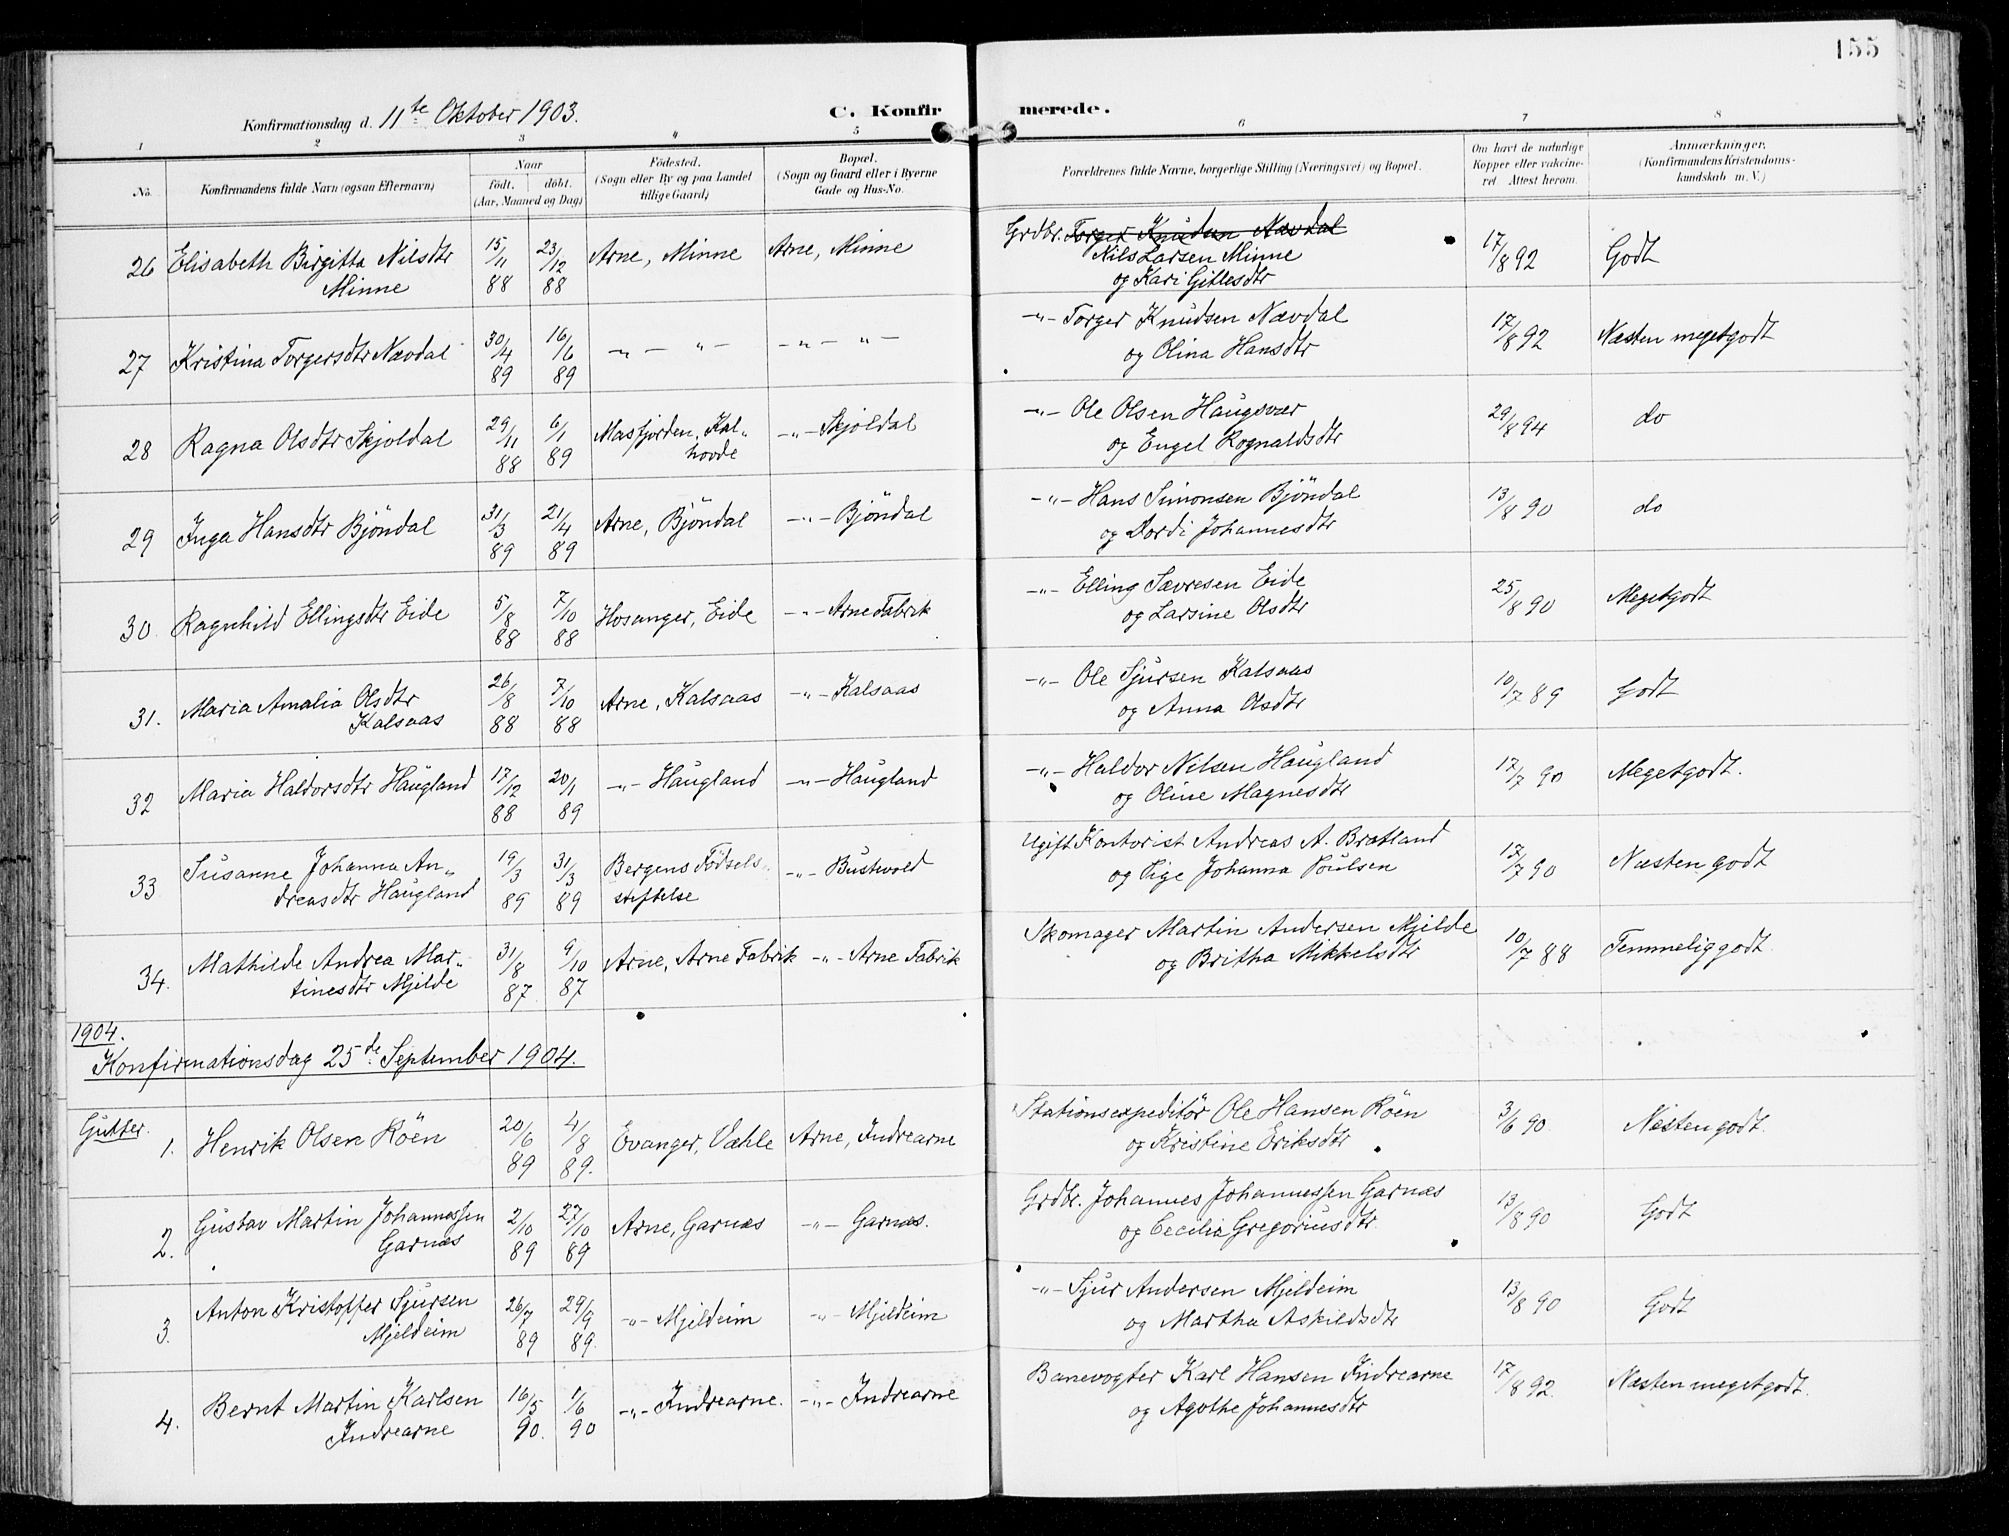 155
Konfirmationsdag d. 11te Oktober 1903.
C. Konfirmerede.
1 2 3 4 5 6 7 8
No. Konfirmandens fulde Navn (ogsaa Efternavn) Naar födt. döbt. (Aar, Maaned og Dag) Födested. (Sogn eller By og paa Landet tillige Gaard) Bopæl. (Sogn og Gaard eller i Byerne Gade og Hus-No. Forældrenes fulde Navne, borgerlige Stilling (Næringsvei) og Bopæl. Om havt de naturlige Kopper eller vakcineret. Attest herom. Anmærkninger. (Konfirmandens Kristendomskundskab m. V.)
26 Elisabeth Birgitta Nilsdtr 15/11 88 23/12 88 Arne, Minne Arne, Minne Grdbr. Torger Knudsen Nævdal 17/8 92 Godt
Minne Nils Larsen Minne
og Kari Gitlesdtr
27 Kristina Torgersdtr Nævdal 30/4 89 16/6 89 -„- „- -„- „- -„- Torger Knudsen Nævdal 17/8 92 Næsten megetgodt
og Olina Hansdtr
28 Ragna Olsdtr Skjoldal 29/11 88 6/1 89 Masfjorden, Kal- -„- Skjoldal -„- Ole Olsen Haugsvær 29/8 94 do
hovde og Engel Rognaldsdtr
29 Inga Hansdtr Bjöndal 31/3 89 21/4 89 Arne, Bjöndal -„- Bjöndal -„- Hans Simonsen Bjöndal 13/8 90 do
og Dordi Johannesdtr
30 Ragnhild Ellingsdtr Eide 5/8 88 7/10 88 Hosanger, Eide -„- Arne Fabrik -„- Elling Sævresen Eide 25/8 90 Megetgodt
og Larsine Olsdtr
31. Maria Amalia Olsdtr 26/8 88 7/10 88 Arne, Kalsaas -„- Kalsaas -„- Ole Sjursen Kalsaas 10/7 89 Godt
Kalsaas og Anna Olsdtr
32 Maria Haldorsdtr Haugland 17/12 88 20/1 89 -„- Haugland -„- Haugland -„- Haldor Nilsen Haugland 17/7 90 Megetgodt.
og Oline Magnesdtr
33 Susanne Johanna An- 19/3 89 31/3 89 Bergens Födsels- -„- Ugift Kontorist Andreas A. Bratland 17/7 90 Næsten godt
dreasdtr Haugland stiftelse og Pige Johanna Poulsen
34. Mathilde Andrea Mar- 31/8 87 9/10 87 Arne, Arne Fabrik -„- Arne Fabrik Skomager Martin Andersen Mjelde 10/7 88 Temmelig godt.
tinesdtr Mjelde og Britha Mikkelsdtr
1904.
Konfirmationsdag 25de September 1904.
Gutter. 1. Henrik Olsen Röen 20/6 89 4/8 89. Evanger, Væhle Arne, Indrearne Stationsexpeditör Ole Hansen Röen 3/6 90. Næsten godt.
og Kristine Eriksdtr
2. Gustav Martin Johannessen 2/10 89 27/10 89 Arne, Garnæs -„- Garnæs. Grdbr. Johannes Johannessen Garnæs 13/8 90 Godt
Garnæs og Cecilia Gregoriusdtr.
3. Anton Kristoffer Sjursen 26/7 89 29/9 89. -„- Mjeldeim -„- Mjeldeim -„- Sjur Andersen Mjeldeim 13/8 90 Godt
Mjeldeim og Martha Askildsdtr
4. Bernt Martin Karlsen 16/5 90. 1/6 90 -„- Indrearne. -„- Indrearne Banevogter Karl Hansen Indrearne 17/8 92. Næsten megetgodt.
Indrearne og Agothe Johannesdtr